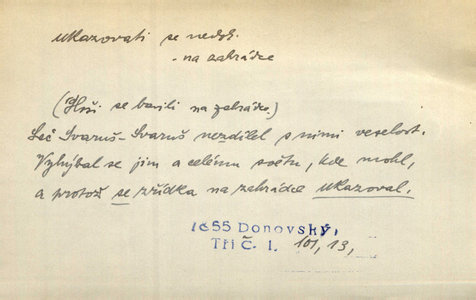 ukazovati se nedok.
- na zahrádce
(Hoši se bavili na zahrádce.)
Leč Svaruš-Svaruš nezdílel s nimi veselost.
Vyhýbal se jim a celému světu, kde mohl,
a protož se zřídka na zahrádce ukazoval.
1655 Donovský,
Tři č. 1. 101, 13,